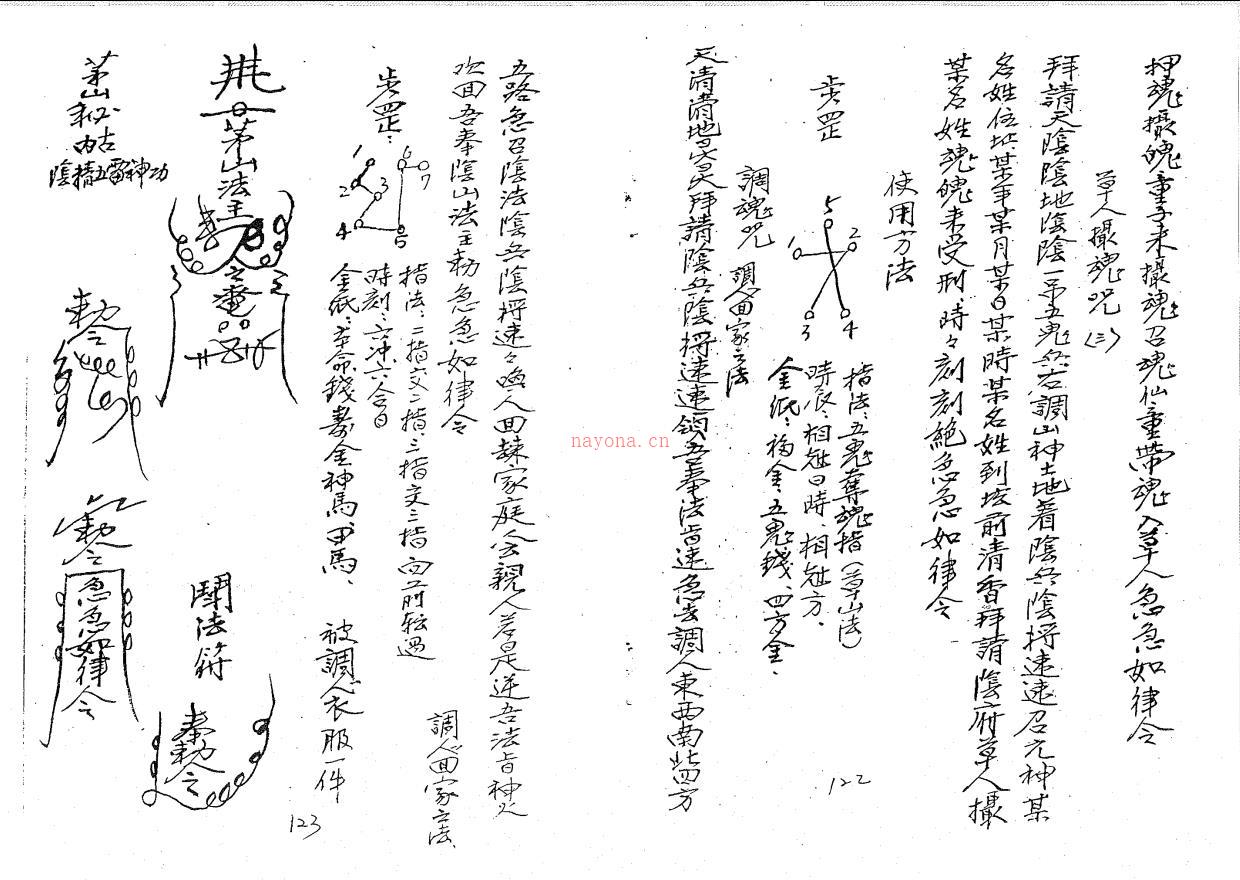 押魂攝魄童子來攝魂召魂仙童帶魂入草人急急如律令
草人攝魂咒(三)
拜請天陰陰地陰陰一吊五鬼兵右調山神土地着陰兵陰將速速召元神某
名姓位址某年某月某日某時某名姓到坛前清香拜請陰府草人攝
某名姓魂魄來受刑、時々刻刻絕急急如律令
使用方法
步罡
1 2 3 4 5
指法：五鬼奪魂指(草山法)
時辰：相冲日時、相冲方、
金紙：福金、五鬼錢、四方金、
122
調魂咒
調人回家之法
天清清地灵灵拜請陰兵陰將速速領吾奉法旨速急去調人東西南北四方
五路急召陰法陰兵陰將速々喚人回隸家庭會親人若是逆吾法旨神人
欢回吾奉陰山法主勅急急如律令
步罡：
1 2 3 4 5 6 7
指法：二指交二指、三指交三指向前轉過
時刻：六冲六合日
金紙：本命錢壽金神馬甲馬、被調人衣服一件
調人回家之法、
123
茅山法主
鬪法符
奉勅令
茅山秘古
陰掃五雷神功
勅令
勅令急急如律令
nayona.cn